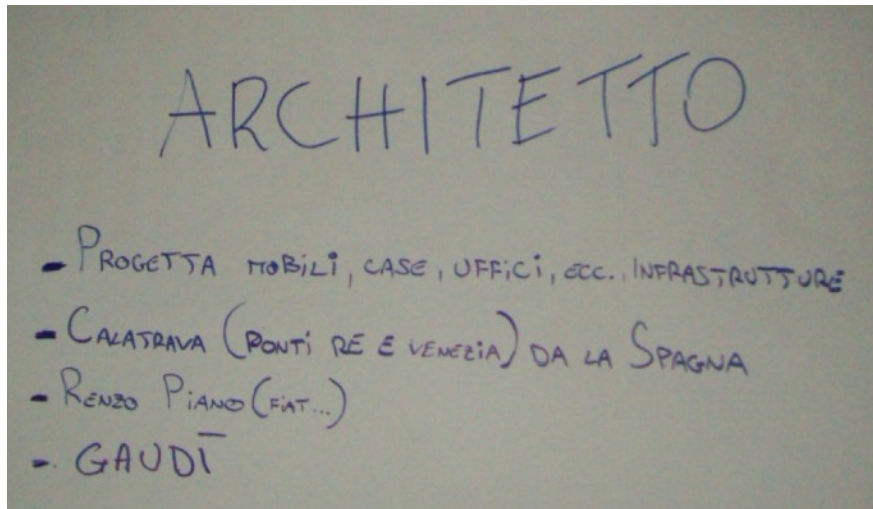 ARCHITETTO
- PROGETTA MOBILI, CASE, UFFICI, ECC.. INFRASTRUTTURE
- CALATRAVA (PONTI RE E VENEZIA) DA LA SPAGNA
- RENZO PIANO (FIAT...)
- GAUDÌ